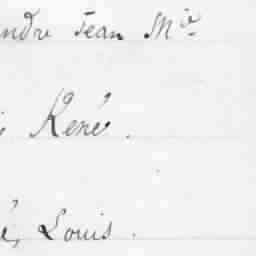 ndre Jean Mie
René.
é, Louis.